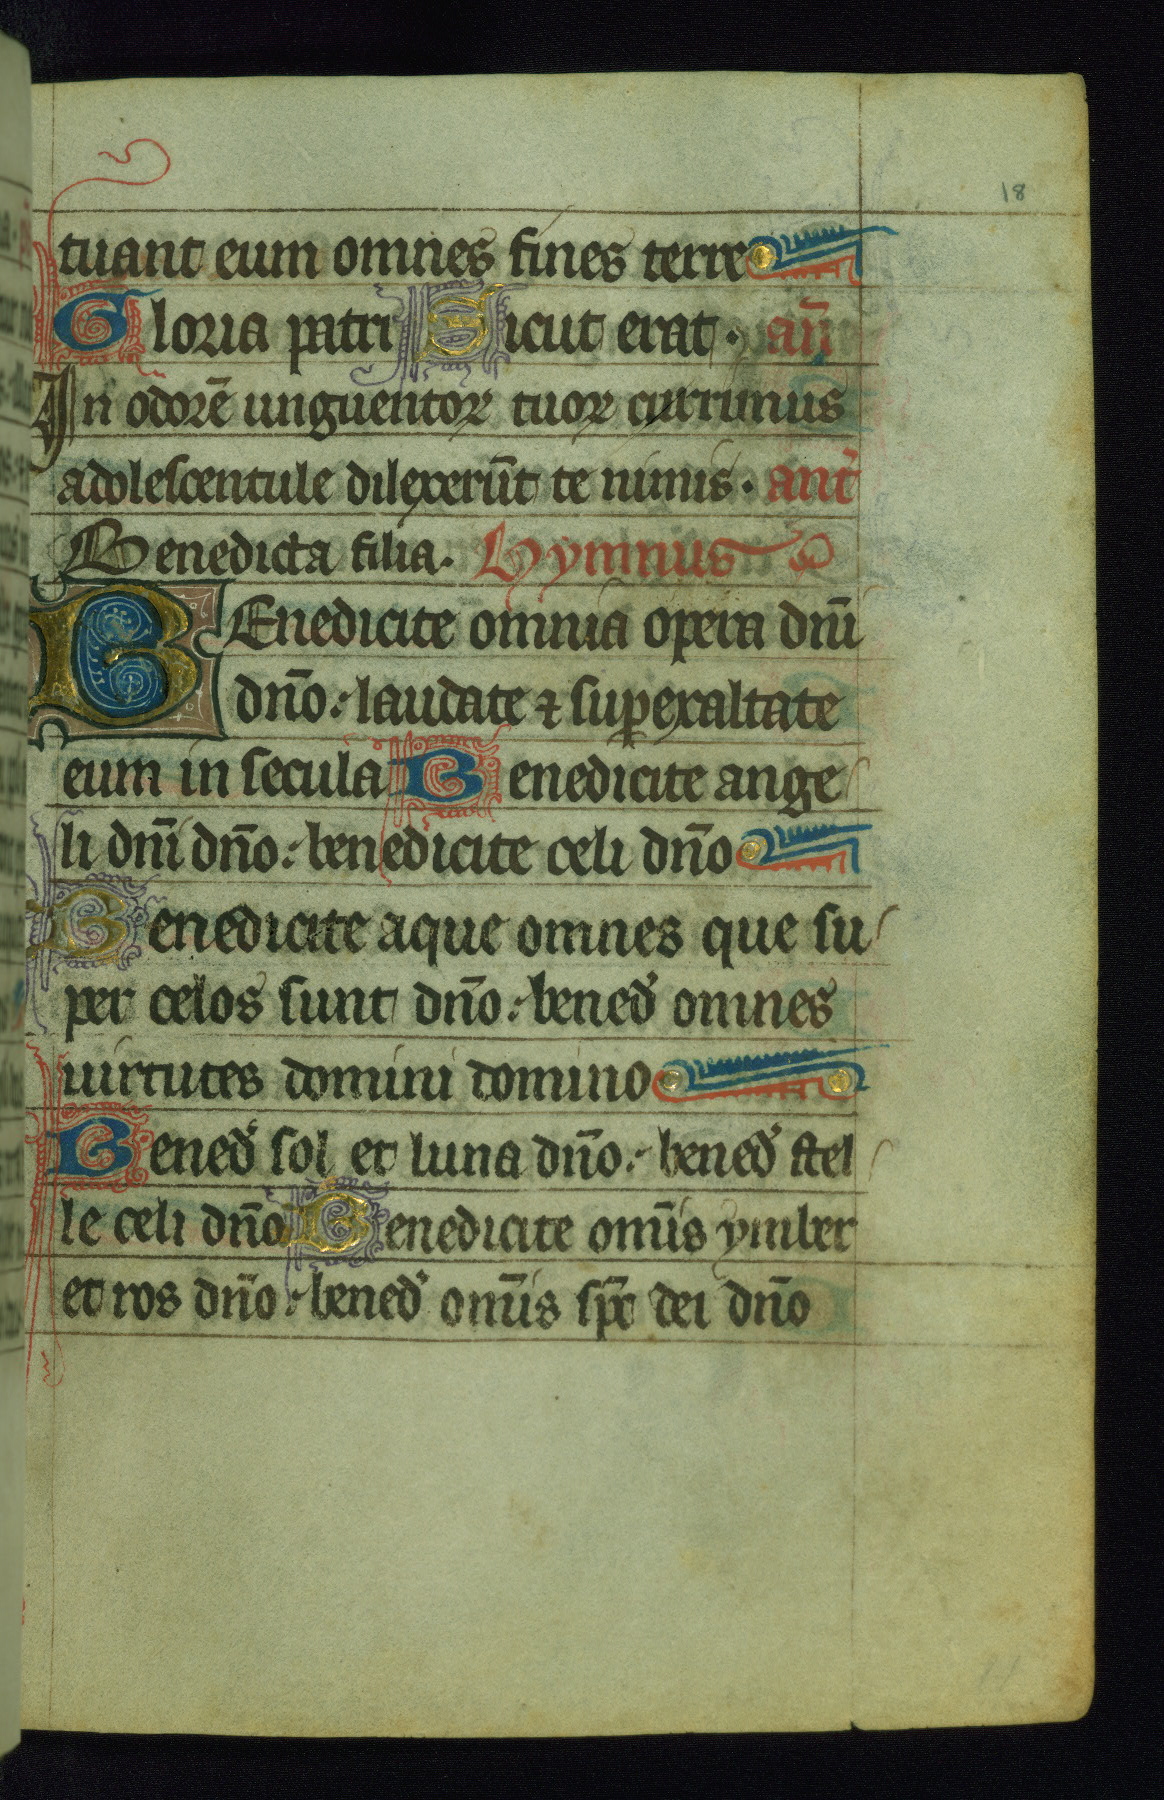 18
tuant eum omnes fines terre
Gloria patri Sicut erat. an̄
In odorē unguentoꝝ tuoꝝ currimus
adolescentule dilexerūt te nimis. ant̄
Benedicta filia. Hymnus
BEnedicite omnia opera dn̄i
dn̄o: laudate ⁊ suꝑexaltate
eum in secula Benedicite ange
li dn̄i dn̄o: benedicite celi dn̄o
Benedicite aque omnes que su
per celos sunt dn̄o: bened̓ omnes
uirtutes domini domino
Bened̓ sol et luna dn̄o: bened̓ stel
le celi dn̄o Benedicite om̄is ymber
et ros dn̄o: bened̓ om̄is sp̄c dei dn̄o